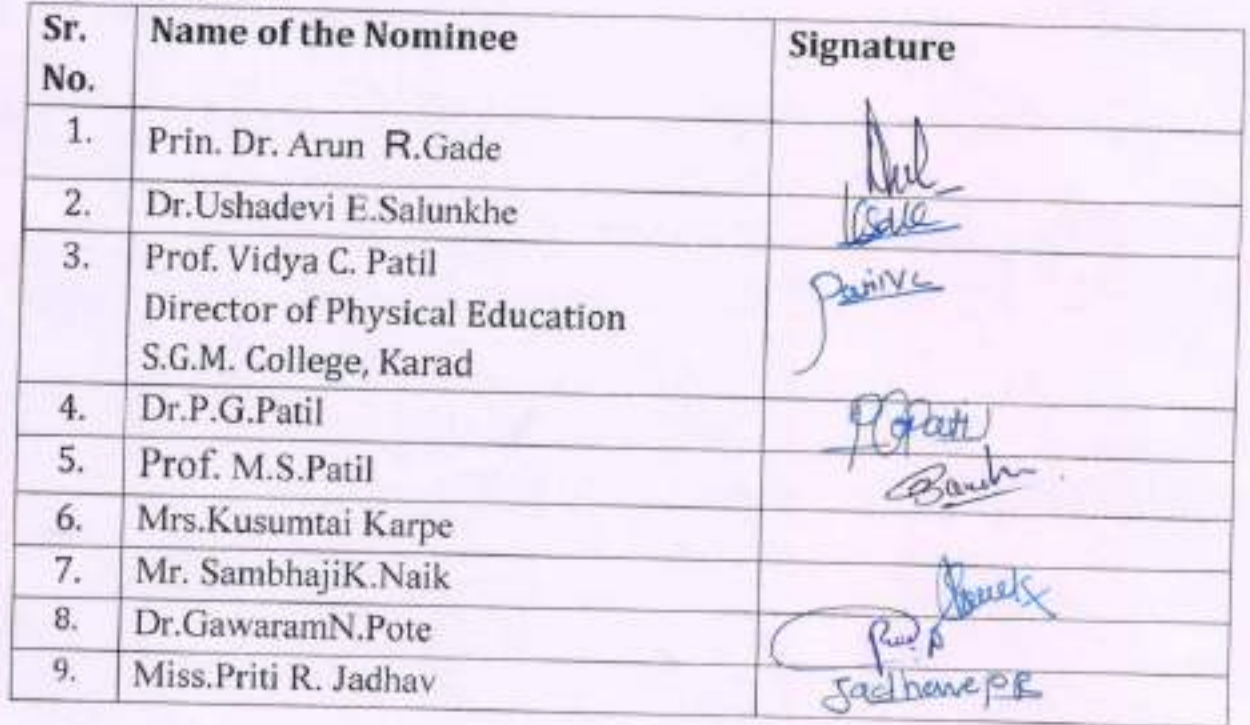 Sr. No. Name of the Nominee Signature
1. Prin. Dr. Arun R.Gade
2. Dr.Ushadevi E.Salunkhe
3. Prof. Vidya C. Patil PatilVC
Director of Physical Education
S.G.M. College, Karad
4. Dr.P.G.Patil PGPatil
5. Prof. M.S.Patil
6. Mrs.Kusumtai Karpe
7. Mr. SambhajiK.Naik
8. Dr.GawaramN.Pote
9. Miss.Priti R. Jadhav JadhavPR